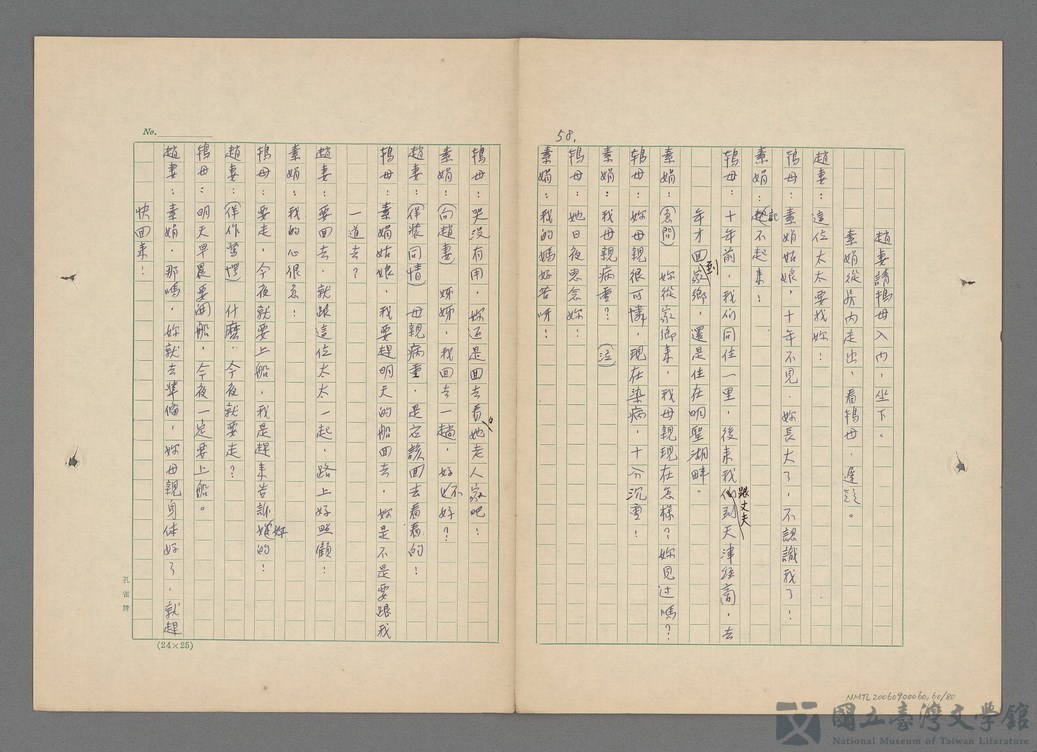 58.
趙妻請鴇母入內，坐下。
素娟從房內走出，看鴇母，遲疑。
趙妻：這位太太要找妳！
鴇母：素娟姑娘，十年不見，妳長大了，不認識我了！
素娟：記不起來！
鴇母：十年前，我們同住一里，後來我跟丈夫到天津經商，去
年才回到家鄉，還是住在明聖湖畔。
素娟：（急問）妳從家鄉來，我母親現在怎樣？妳見过嗎？
鴇母：妳母親很可憐，現在染病，十分沉重！
素娟：我母親病重？（泣）
鴇母：她日夜思念妳！
素娟：我的媽好苦呀！
No.
鴇母：哭沒有用，妳还是回去看看她老人家吧！
素娟：（向趙妻）姊姊，我回去一趟，好不好？
趙妻：（佯裝同情）母親病重，是应該回去看看的！
鴇母：素娟姑娘，我要趕明天的船回去，妳是不是要跟我
一道去？
趙妻：要回去，就跟這位太太一起，路上好照顧！
素娟：我的心很急！
鴇母：要走，今夜就要上船，我是趕來告訴妳的！
趙妻：（佯作驚愕）什麼，今夜就要走？
鴇母：明天早晨要開船，今夜一定要上船。
趙妻：素娟，那嗎，妳就去準備，妳母親身体好了，就趕
快回來！
孔雀牌
(24×25)
NMTL20060900060,60/80
國立臺灣文學館
National Museum of Taiwan Literature